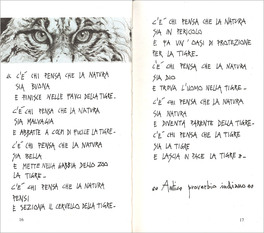 " C'È CHI PENSA CHE LA NATURA
SIA BUONA
E FINISCE NELLE FAUCI DELLA TIGRE.
C'È CHI PENSA CHE LA NATURA
SIA MALVAGIA
E ABBATTE A COLPI DI FUCILE LA TIGRE.
C'È CHI PENSA CHE LA NATURA
SIA BELLA
E METTE NELLA GABBIA DELLO ZOO
LA TIGRE.
C'È CHI PENSA CHE LA NATURA
PENSI
E SEZIONA IL CERVELLO DELLA TIGRE.
16
C'È CHI PENSA CHE LA NATURA
SIA IN PERICOLO
E FA UN'OASI DI PROTEZIONE
PER LA TIGRE.
C'È CHI PENSA CHE LA NATURA
SIA DIO
E TROVA L'UOMO NELLA TIGRE.
C'È CHI PENSA CHE LA NATURA
SIA NATURA
E DIVENTA PARENTE DELLA TIGRE.
C'È CHI PENSA CHE LA TIGRE
SIA LA TIGRE
E LASCIA IN PACE LA TIGRE "
Antico proverbio indiano
17